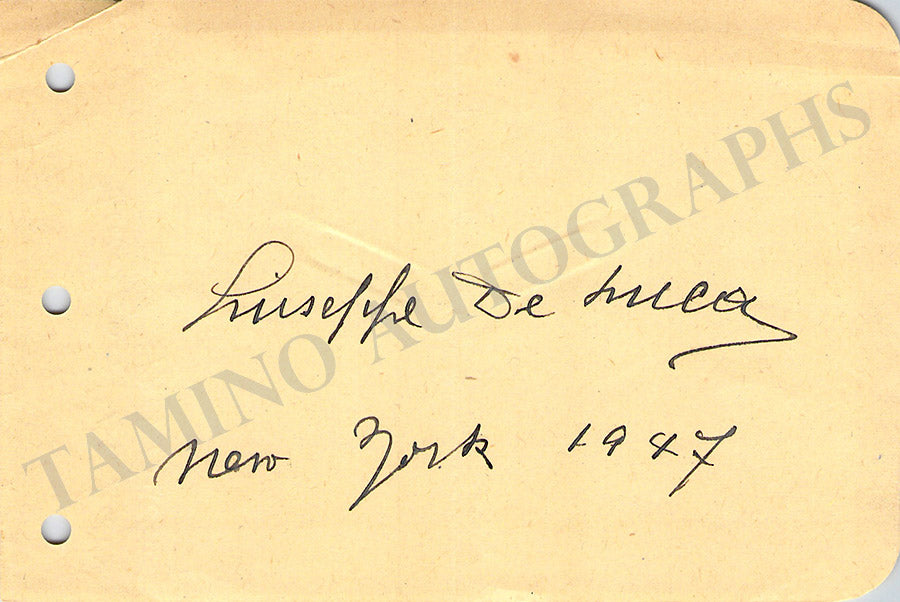 Giuseppe De Luca
New York 1947
TAMINO AUTOGRAPHS